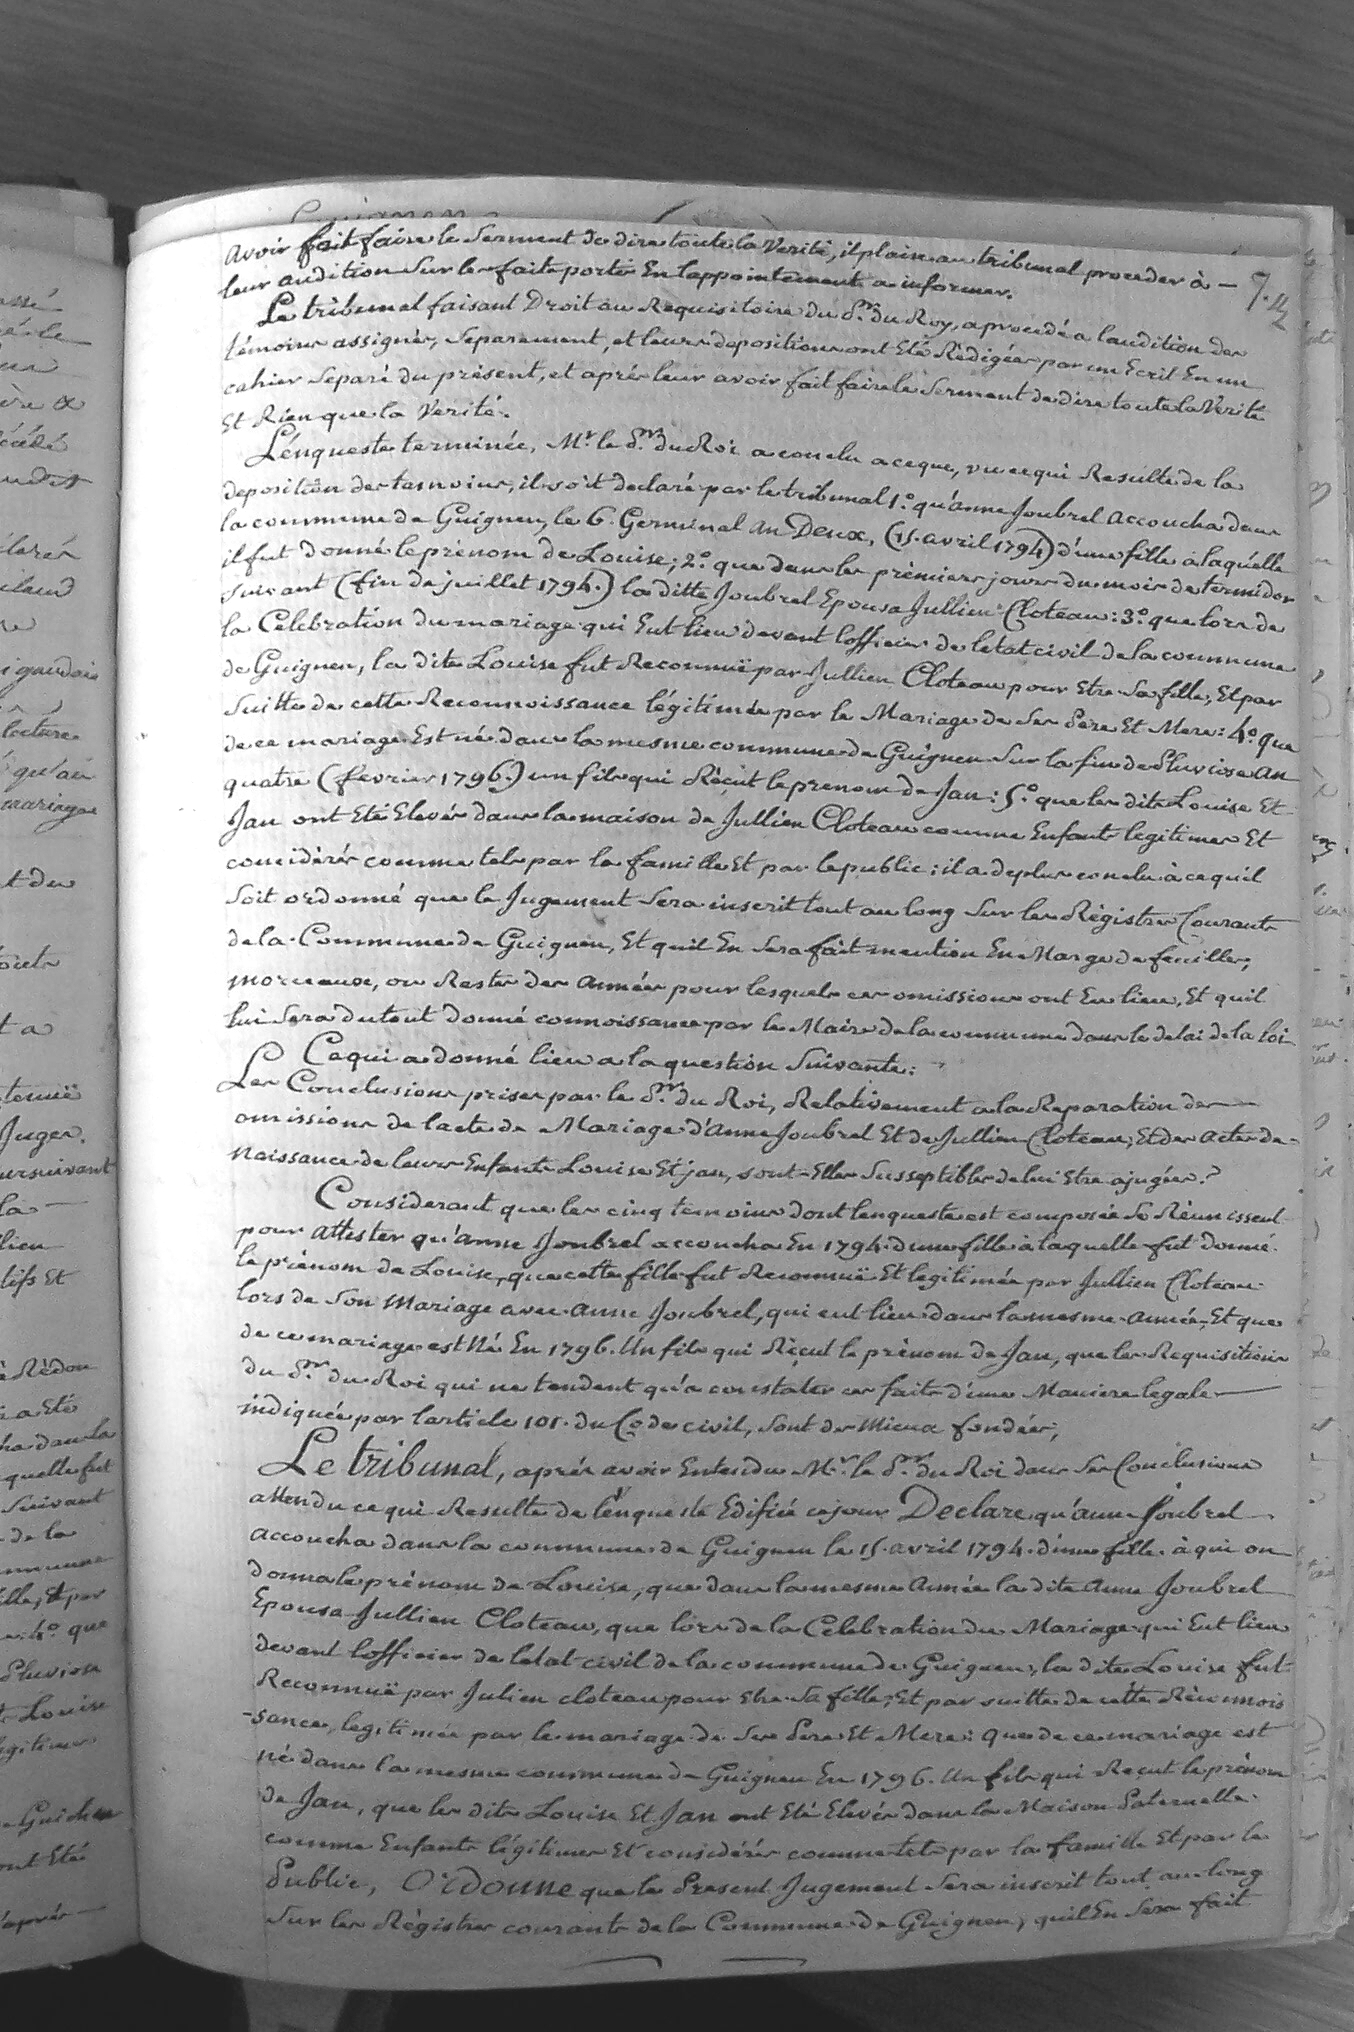 avoir fait faire le Serment de dire toute la Verité, il plaise au tribunal proceder à —
leur audition Sur les faits portés En l'appointement a informer.
Le tribunal faisant Droit au Requisitoire du P.r du Roy, a procedé a laudition des
témoins assignés, Separement, et leurs depositions ont Eté Rédigées par un Ecrit En un
cahier Separé du présent, et aprés leur avoir fait faire le Serment de dire toute la Verité
Et Rien que la Verité.
L'énqueste terminée, M.r le P.r du Roi a conclu a ceque, vu cequi Resulte de la
deposition des temoins, il soit declaré par le tribunal 1.° qu'anne Joubrel accoucha dans
la commune de Guignen, le 6. Germinal an Deux, (15. avril 1794) d'une fille a laquélle
il fut donné le prénom de Louise; 2.° que dans les prémiers jours du mois de termidor
Suivant (fin de juillet 1794.) la ditte Joubrel Epousa Jullien Cloteau: 3.° que lors de
la Célébration du mariage qui Eut lieu devant lofficier de letat civil de la commune
de Guignen, la dite Louise fut Reconnuë par Jullien Cloteau pour Etre Sa fille, Et par
Suitte de cette Reconnoissance légitimée par le Mariage de Ses Pere Et Mere: 4.° que
de ce mariage Est né dans la mesme commune de Guignen Sur la fin de Pluviose an
quatre (fevrier 1796.) un fils qui Réçut le prenom de Jan: 5.° que les dits Louise Et
Jan ont Eté Elevés dans la maison de Jullien Cloteau comme Enfants legitimes Et
considérés comme tels par la famille Et par le public: il a deplus conclu à cequil
Soit ordonné que le Jugement Sera inscrit tout au long Sur les Régistres Courants
de la Commune de Guignen, Et quil En Sera fait mention En Marge des feuilles,
morceaux, ou Restes des années pour lesquels ces omissions ont Eu lieu, Et quil
lui Sera du tout donné connoissance par le Maire de la commune dans le delai de la loi
Cequi a donné lieu a la question Suivante:
Les Conclusions prises par le P.r du Roi, Relativement a la Reparation des
omissions de l'acte de Mariage d'Anne Joubrel Et de Jullien Cloteau, Et des actes de
Naissance de leurs Enfants Louise Et jan, sont-Elles Susseptibles de lui Etre ajugées?
Considerant que les cinq temoins dont lenqueste est composée Se Réunissent
pour attester qu'anne Joubrel accoucha En 1794. d'une fille à laquelle fut donné
le prénom de Louise, que cette fille fut Reconnuë Et legitimée par Jullien Cloteau
lors de Son Mariage avec anne Joubrel, qui eut lieu dans la mesme année, Et que
de ce mariage est Né En 1796. Un fils qui Réçut le prénom de Jan, que les Requisitions
du P.r du Roi qui ne tendent qu'a constater ces faits d'une Maniere legale —
indiquée par larticle 101. du Code civil, sont des Mieux fondées;
Le tribunal, aprés avoir Entendu M.r le P.r du Roi dans Ses Conclusions
attendu ce qui Resulte de l'énqueste Edifiée ce jour Declare qu'anne Joubrel
accoucha dans la commune de Guignen le 15. avril 1794. d'une fille à qui on
donna le prénom de Louise, que dans la mesme année la dite anne Joubrel
Epousa Jullien Cloteau, que lors de la Célébration du Mariage qui Eut lieu
devant lofficier de letat civil de la commune de Guignen, la dite Louise fut
Reconnuë par Julien cloteau pour Etre Sa fille, Et par suitte de cette Réconnois
-sance, legitimée par le mariage de Ses Pere Et Mere: que de ce mariage est
né dans la mesme commune de Guignen En 1796. Un fils qui Reçut le prénom
de Jan, que les dits Louise Et Jan ont Eté Elevés dans la Maison Paternelle
comme Enfants légitimes Et considérés comme tels par la famille Et par le
Public, Ordonne que le Present Jugement Sera inscrit tout au long
Sur les Régistres courants de la Commune de Guignen, quil En Sera fait